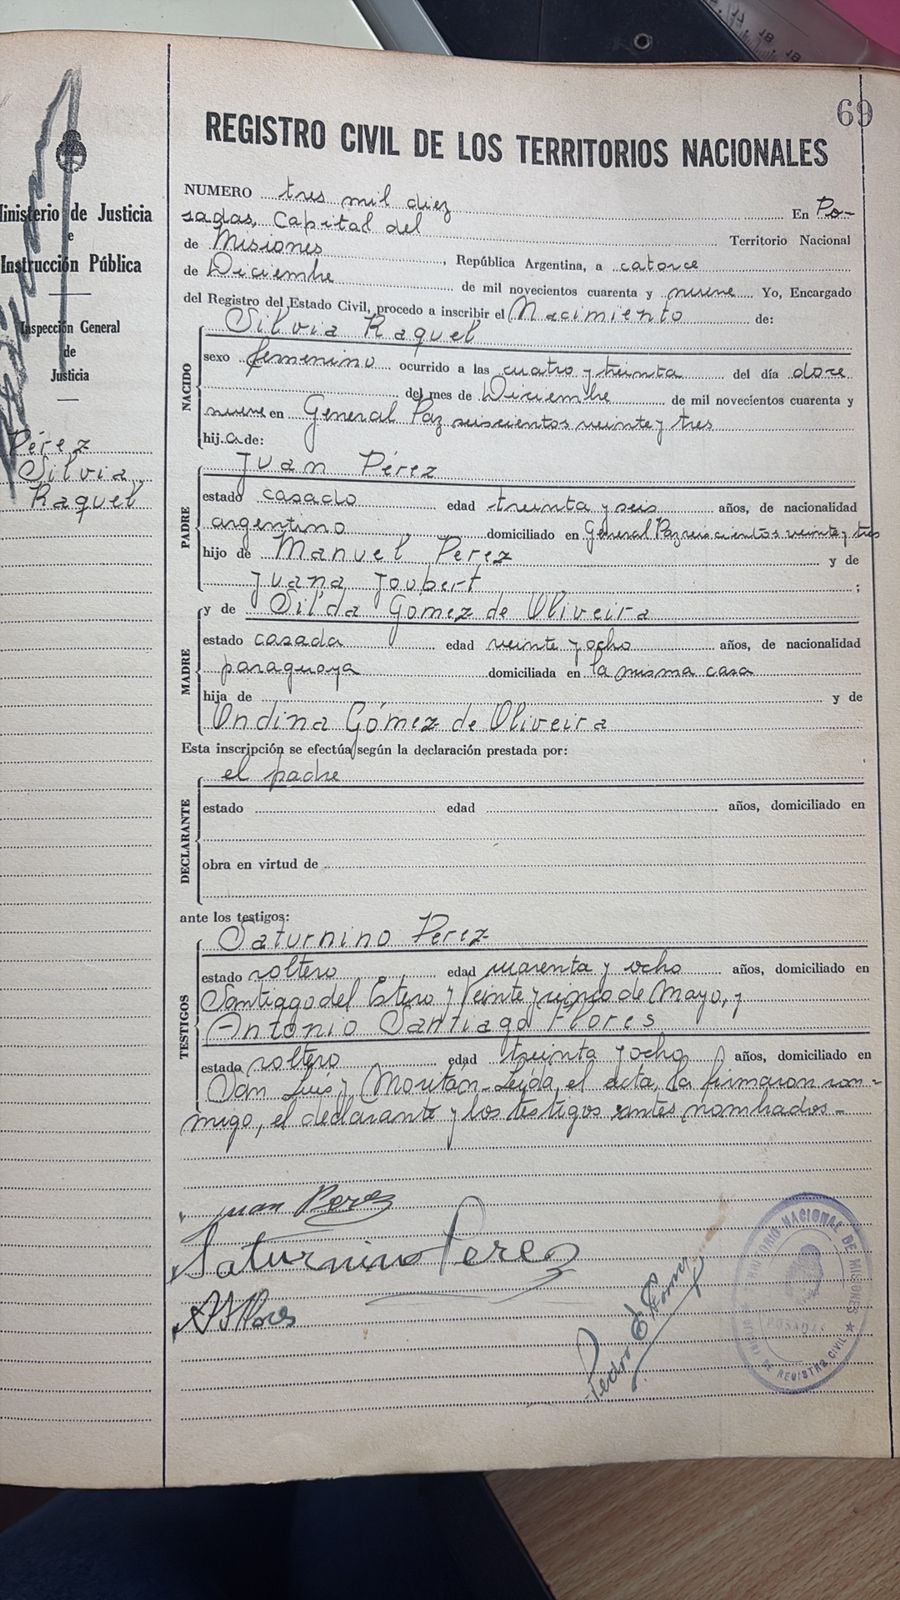 69
REGISTRO CIVIL DE LOS TERRITORIOS NACIONALES
Ministerio de Justicia
e
Instrucción Pública
Inspección General
de
Justicia
Pérez
Silvia
Raquel
NUMERO tres mil diez En Po-
sadas, Capital del Territorio Nacional
de Misiones, República Argentina, a catorce
de Diciembre de mil novecientos cuarenta y nueve Yo, Encargado
del Registro del Estado Civil, procedo a inscribir el Nacimiento de:
NACIDO
Silvia Raquel
sexo femenino ocurrido a las cuatro y treinta del día doce
del mes de Diciembre de mil novecientos cuarenta y
nueve en General Paz seiscientos veinte y tres
hij a de:
PADRE
Juan Pérez
estado casado edad treinta y seis años, de nacionalidad
argentino domiciliado en General Paz seiscientos veinte y tres
hijo de Manuel Perez y de
Juana Joubert ;
MADRE
y de Silda Gomez de Oliveira
estado casada edad veinte y ocho años, de nacionalidad
paraguaya domiciliada en la misma casa
hija de y de
Ondina Gómez de Oliveira
Esta inscripción se efectúa según la declaración prestada por:
DECLARANTE
el padre
estado edad años, domiciliado en
obra en virtud de
ante los testigos:
TESTIGOS
Saturnino Perez
estado soltero edad cuarenta y ocho años, domiciliado en
Santiago del Estero y Veinte y cinco de Mayo, y
Antonio Santiago Flores
estado soltero edad treinta y ocho años, domiciliado en
San Luis y Moritán- Leída el acta, la firmaron con-
migo, el declarante y los testigos antes nombrados-
Juan Perez
Saturnino Perez
A S Flores
Pedro
TERRITORIO NACIONAL DE MISIONES
POSADAS
DE REGISTRO CIVIL